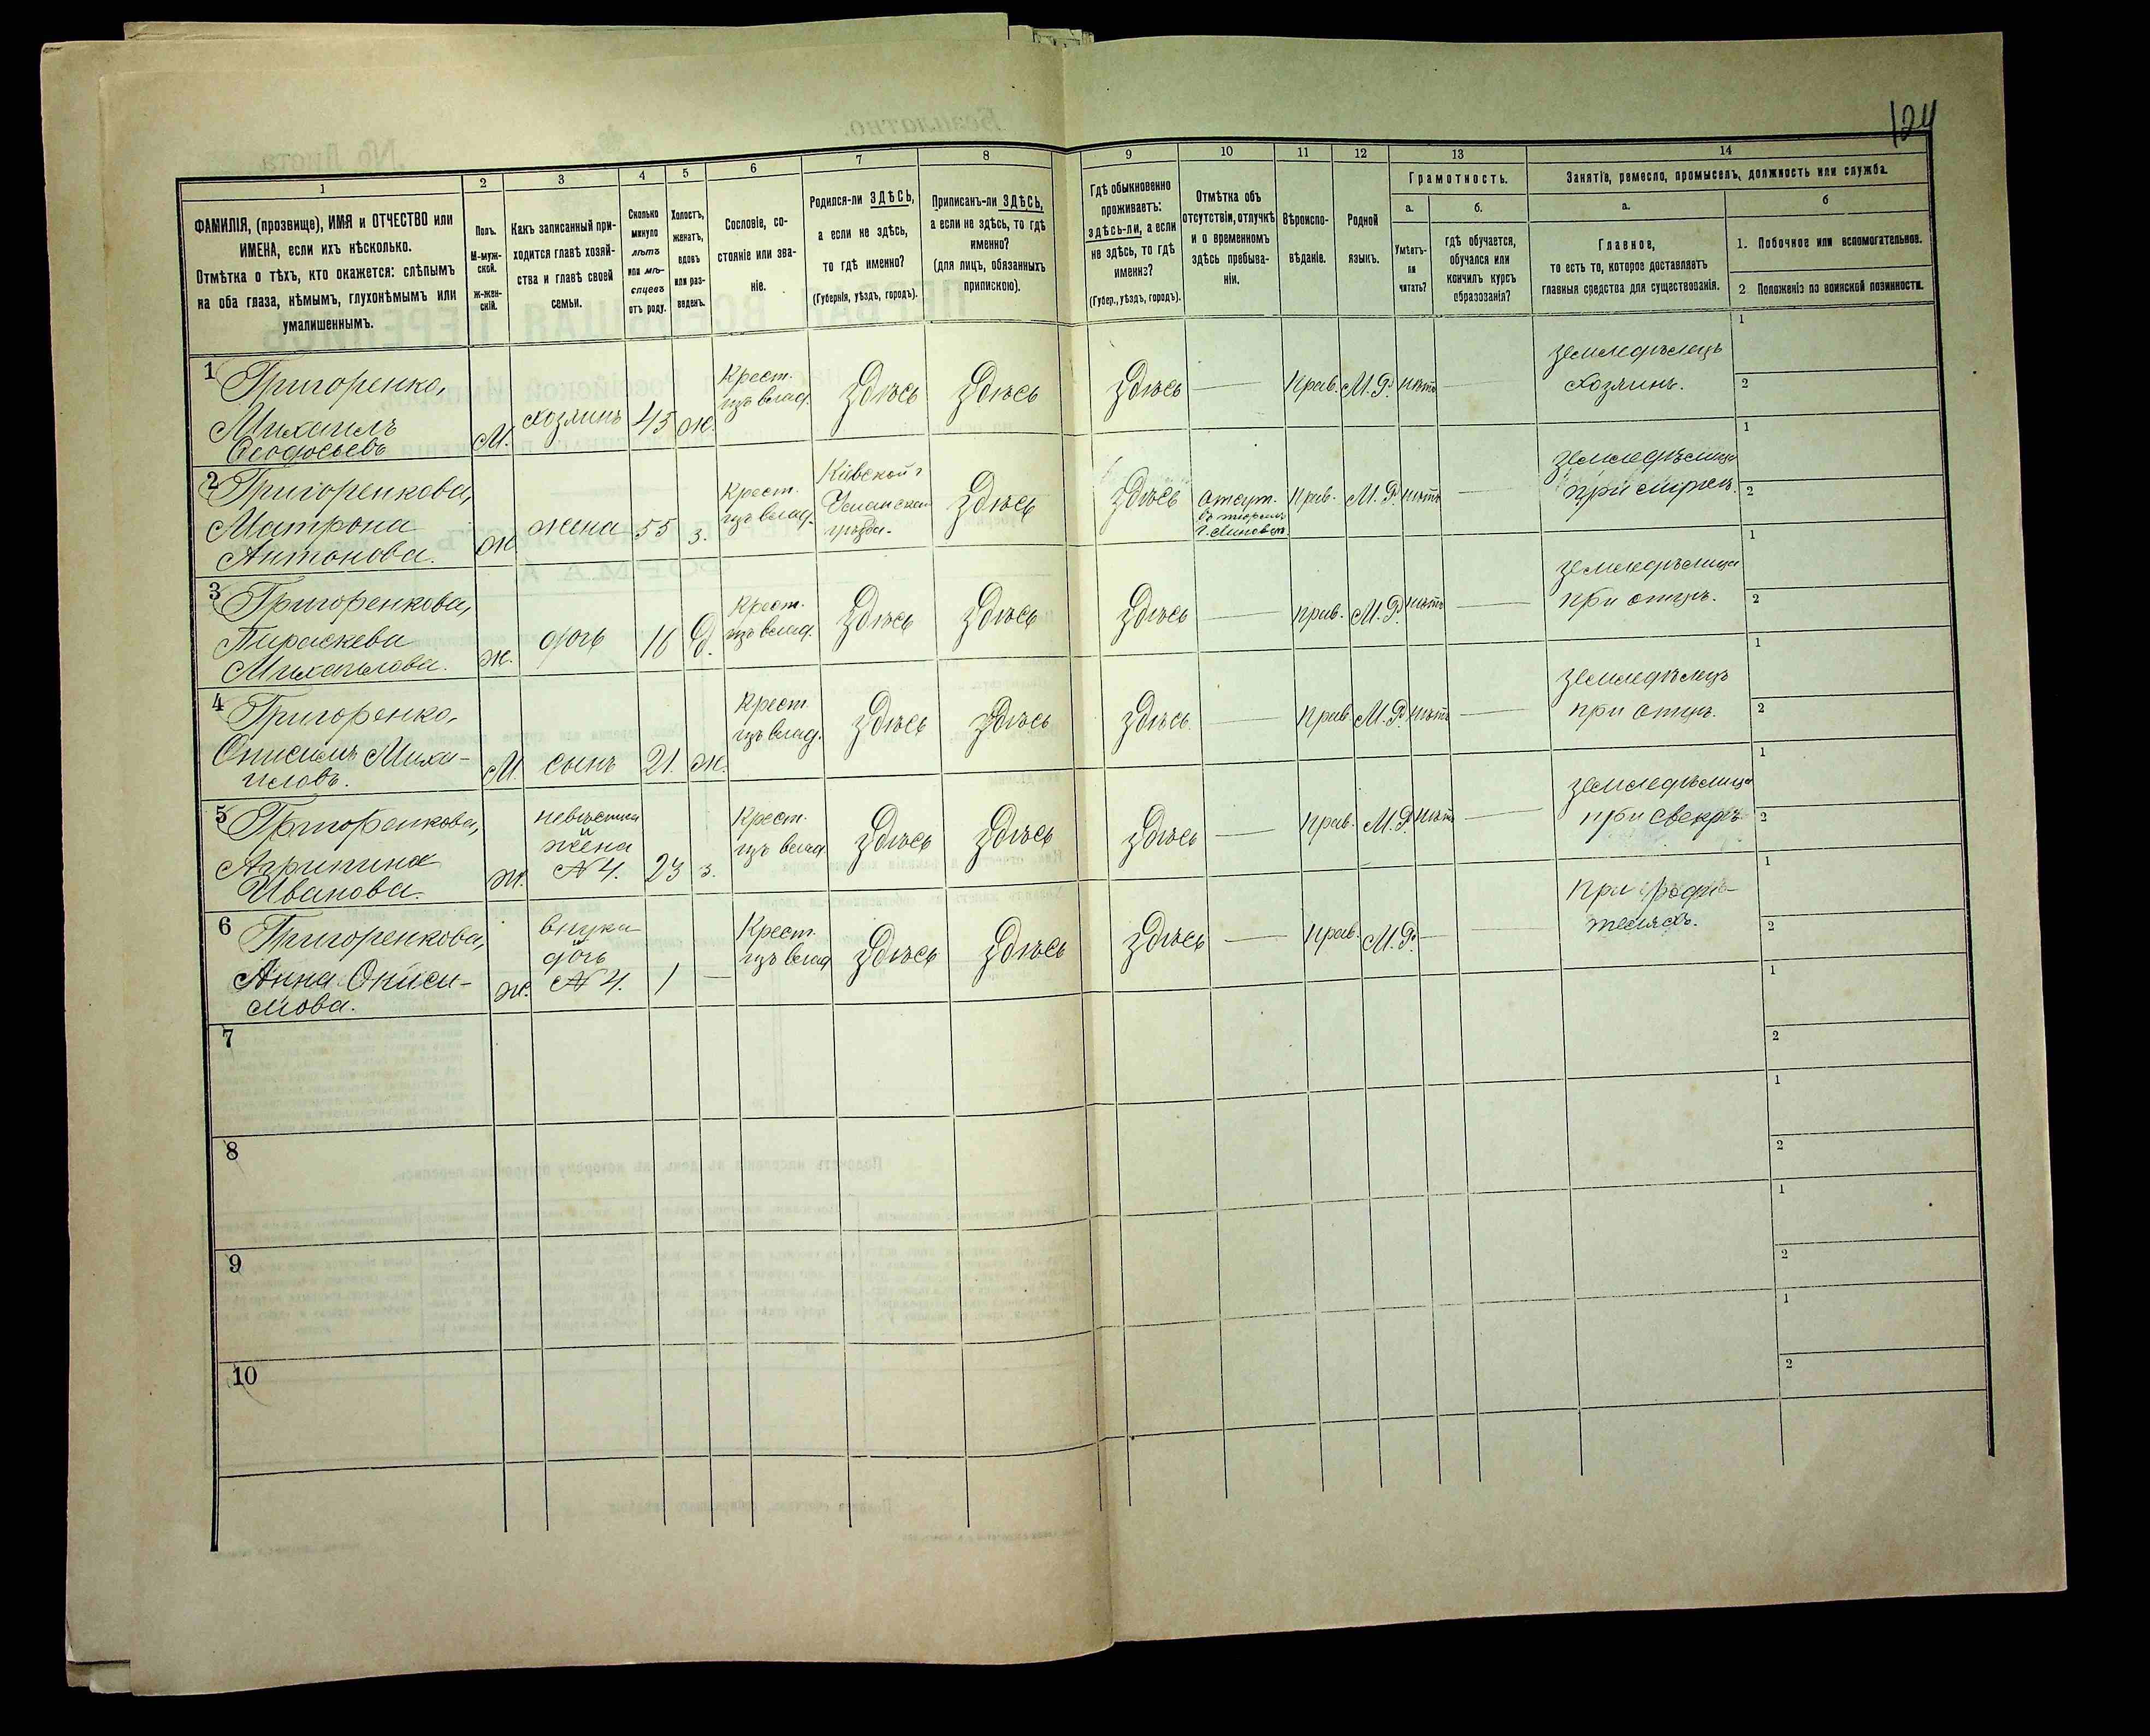 124
1
2
3
4
5
6
7
8
9
10
11
12
13
14
ФАМИЛІЯ, (прозвище), ИМЯ и ОТЧЕСТВО или
ИМЕНА, если ихъ нѣсколько.
Отмѣтка о тѣхъ, кто окажется: слѣпымъ
на оба глаза, нѣмымъ, глухонѣмымъ или
умалишеннымъ.
Полъ.
М-муж-
ской.
Ж-жен-
скій.
Какъ записанный при-
ходится главѣ хозяй-
ства и главѣ своей
семьи.
Сколько
минуло
лѣтъ
или мѣ-
сяцевъ
отъ роду.
Холостъ,
женатъ,
вдовъ
или раз-
веденъ.
Сословіе, со-
стояніе или зва-
ніе.
Родился-ли ЗДѢСЬ,
а если не здѣсь,
то гдѣ именно?
(Губернія, уѣздъ, городъ).
Приписанъ-ли ЗДѢСЬ,
а если не здѣсь, то гдѣ
именно?
(для лицъ, обязанныхъ
припискою).
Гдѣ обыкновенно
проживаетъ:
здѣсь-ли, а если
не здѣсь, то гдѣ
именно?
(Губер., уѣздъ, городъ).
Отмѣтка объ
отсутствіи, отлучкѣ
и о временномъ
здѣсь пребыва-
ніи.
Вѣроиспо-
вѣданіе.
Родной
языкъ.
Грамотность.
а.
Умѣетъ-
ли
читать?
б.
гдѣ обучается,
обучался или
кончилъ курсъ
образованія?
Занятіе, ремесло, промыселъ, должность или служба.
а.
Главное,
то есть то, которое доставляетъ
главныя средства для существованія.
б
1. Побочное или вспомогательное.
2 Положеніе по воинской повинности.
1 Григоренко,
Михаилъ
Феодосьевъ
М. хозяинъ 45 ж.
Крест.
изъ влад.
Здѣсь Здѣсь Здѣсь — Прав. М.Р. нѣтъ —
земледѣлецъ
Хозяинъ.
1
2
2 Григоренкова,
Матрона
Антонова.
ж жена 55 з.
Крест.
изъ влад.
Кіевской г
Уманскаго
уѣзда.
Здѣсь Здѣсь
отсут.
въ тюрьмѣ
Прав. М.Р. нѣтъ —
земледѣлица
при мужѣ.
1
2
3 Григоренкова,
Параскева
Михаилова.
ж. дочь 16 д.
Крест.
изъ влад.
Здѣсь Здѣсь Здѣсь — Прав. М.Р. нѣтъ —
земледѣлица
при отцѣ.
1
2
4 Григоренко,
Онисимъ Миха-
иловъ.
М. сынъ 21. ж.
Крест.
изъ влад.
Здѣсь Здѣсь Здѣсь — Прав М.Р. нѣтъ —
земледѣлецъ
при отцѣ.
1
2
5 Григоренкова,
Агрипина
Иванова.
ж.
невѣстка
и
жена
N 4. 23 з.
Крест.
изъ влад
Здѣсь Здѣсь Здѣсь — Прав. М.Р. нѣтъ —
земледѣлица
при свекрѣ
1
2
6 Григоренкова,
АннаОниси-
мова.
ж.
внука
и
дочь
N 4. 1 —
Крест.
изъ влад
Здѣсь Здѣсь Здѣсь — Прав. М.Р. — —
При роди-
теляхъ.
1
2
7
1
2
8
1
2
9
1
2
10
1
2